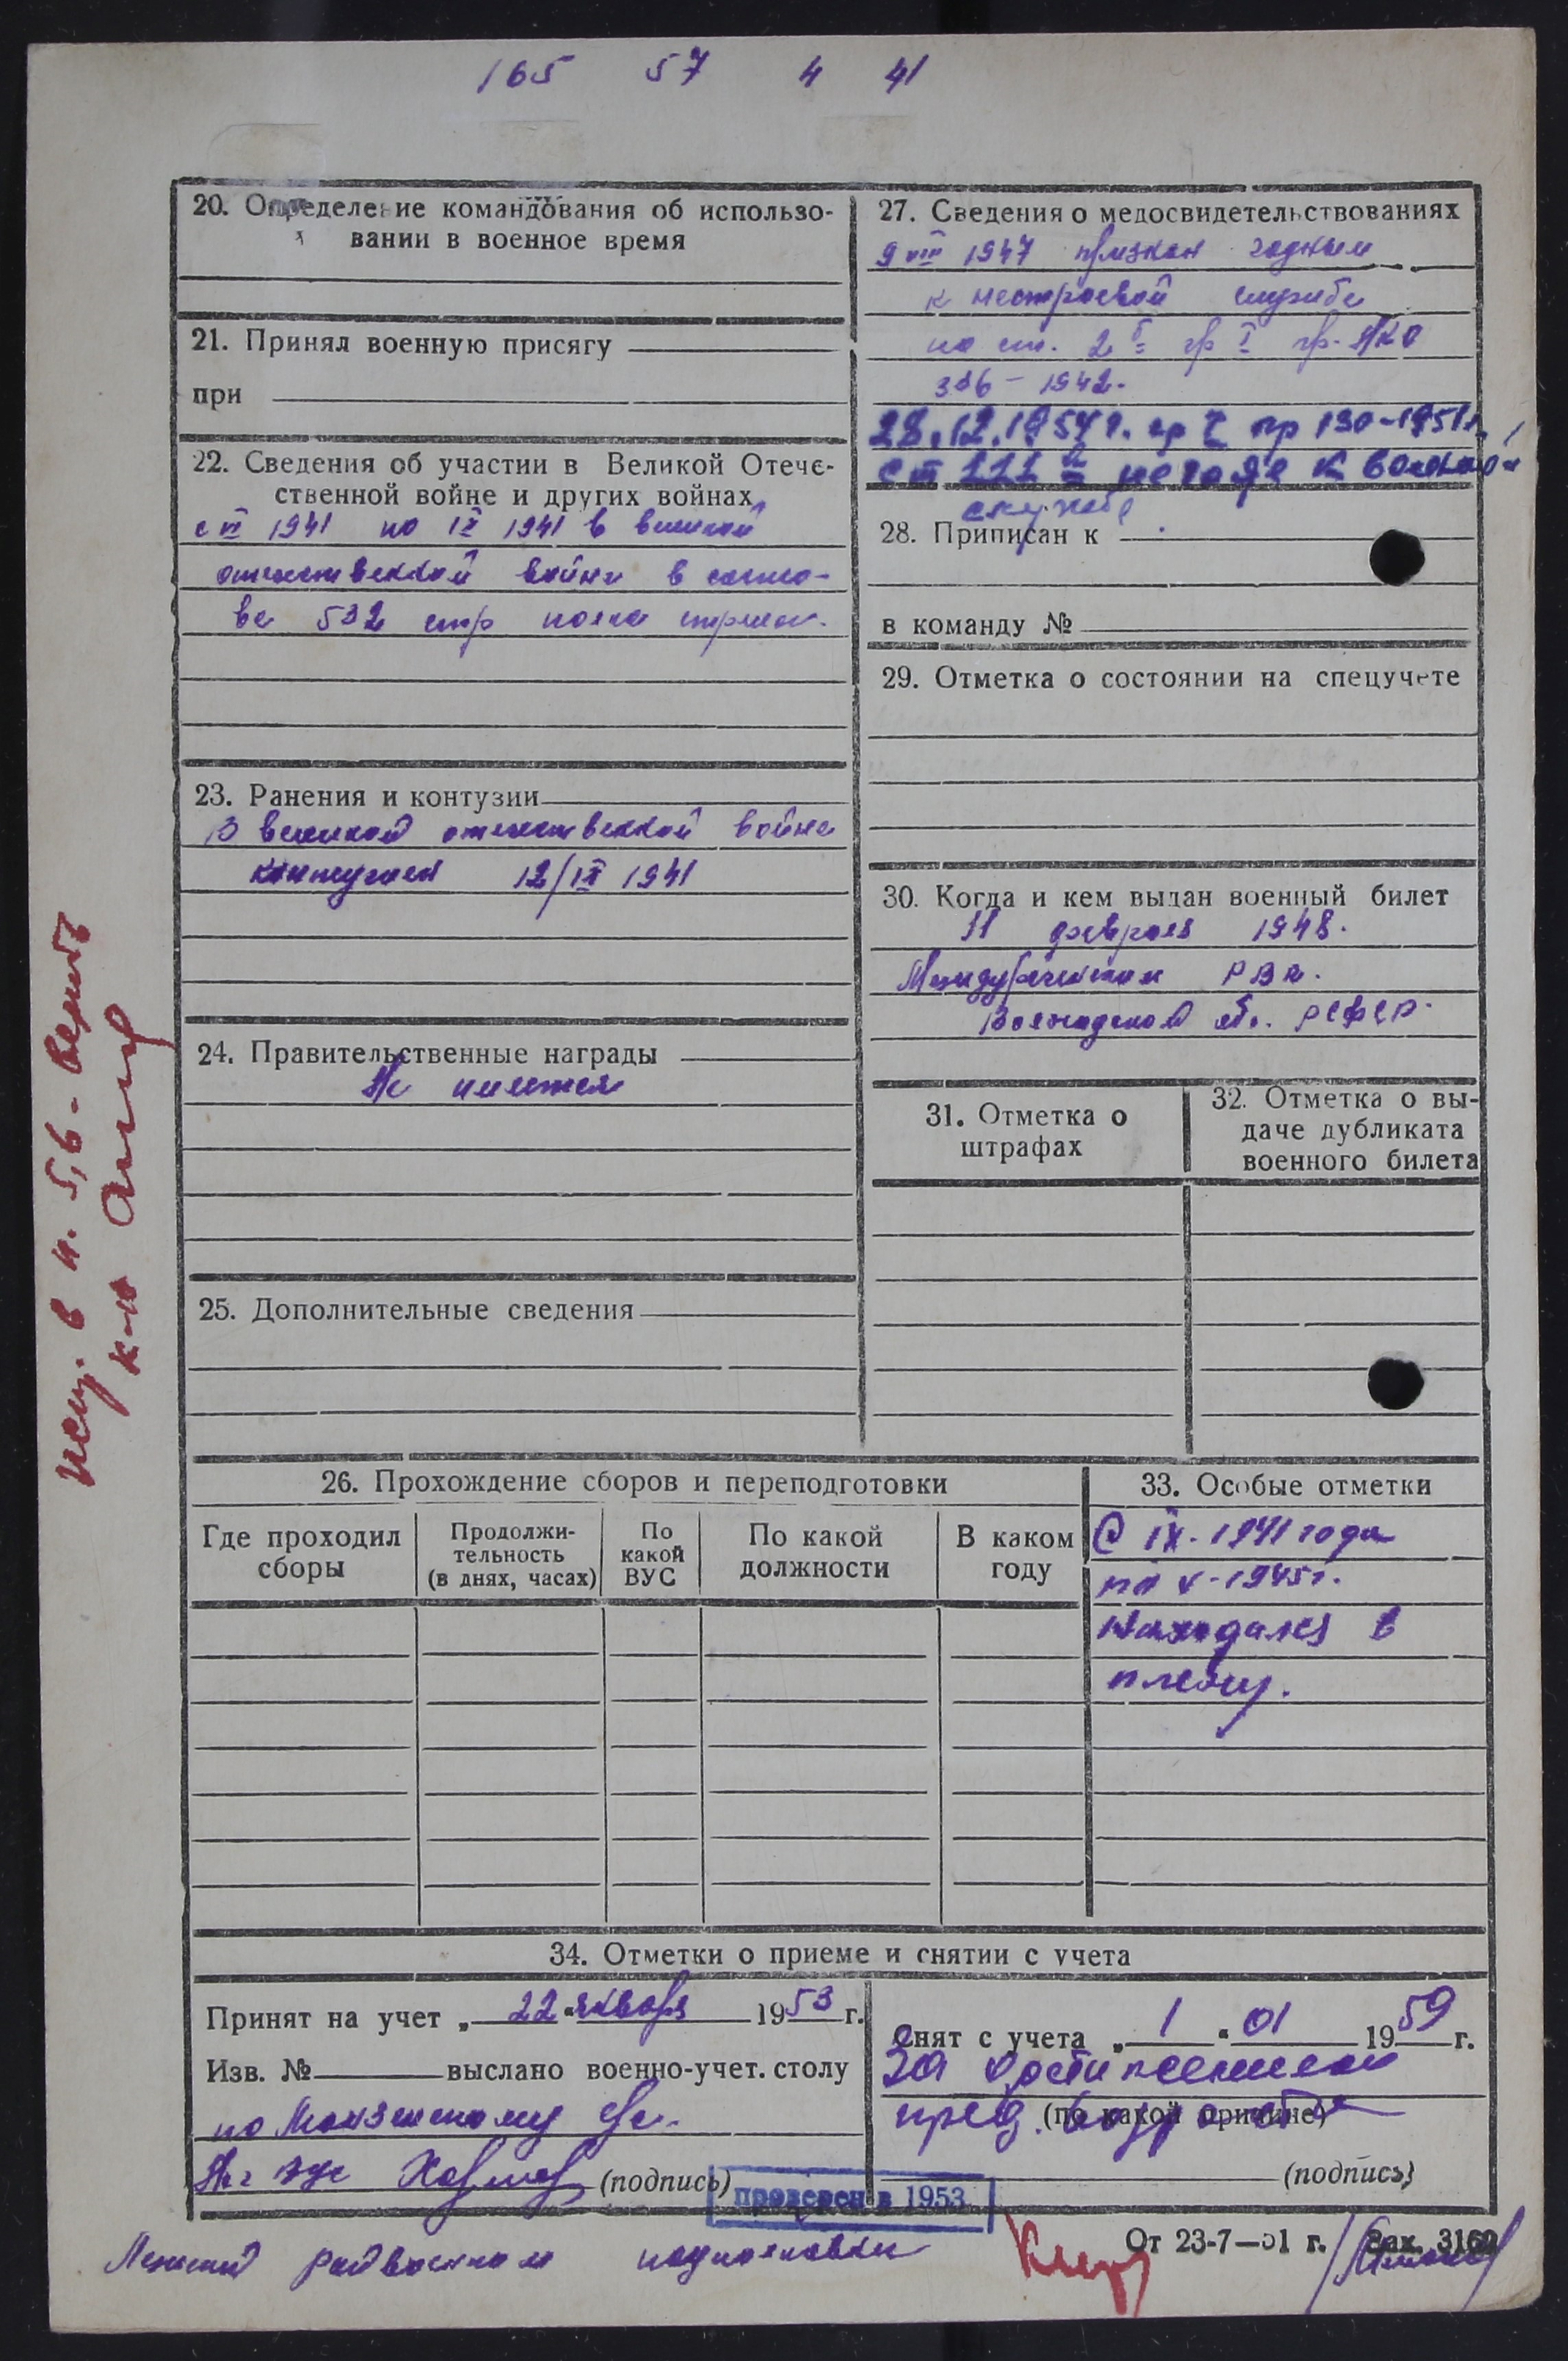 165 57 4 41
20. Определение командования об использо-
вании в военное время
21. Принял военную присягу
при
22. Сведения об участии в Великой Отече-
ственной войне и других войнах
с VI 1941 по IX 1941 в великой
отечественной войне в соста-
ве 532 стр полка стрелок.
23. Ранения и контузии
В великой отечественной войне
контужен 12/IX 1941
24. Правительственные награды
Не имеется
25. Дополнительные сведения
27. Сведения о медосвидетельствованиях
9 VIII 1947 признан годным
к нестроевой службе
по ст. 2 б гр I пр. НКО
336 - 1942.
28.12.1954 г. гр I пр 130-1951г.
ст 111 негоден к военной
службе
28. Приписан к
в команду №
29. Отметка о состоянии на спецучете
30. Когда и кем выдан военный билет
11 февраля 1948.
Междуреченским РВК.
Вологодской обл. РСФСР
31. Отметка о
штрафах
32. Отметка о вы-
даче дубликата
военного билета
26. Прохождение сборов и переподготовки
Где проходил
сборы
Продолжи-
тельность
(в днях, часах)
По
какой
ВУС
По какой
должности
В каком
году
33. Особые отметки
С IX-1941 года
по V-1945г.
находился в
плену.
34. Отметки о приеме и снятии с учета
Принят на учет „ 22 “ января 1953 г.
Изв. № выслано военно-учет. столу
по
(подпись)
Снят с учета „ 1 “ 01 1959 г.
За достижением
пред. возраста
(по какой причине)
(подпись)
проверен в 1953
От 23-7—51 г. Зак. 3162
испр. в п. 5,6 - верить
к-н